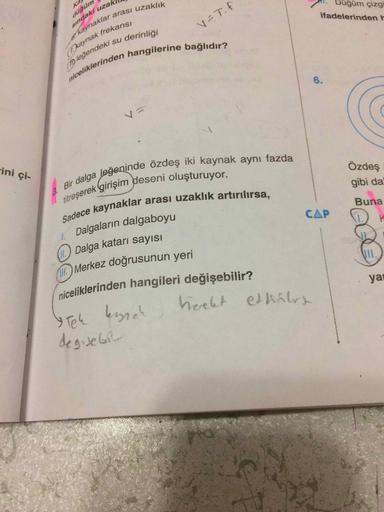 arası uzaklık
kaynaklar arası uzaklık
kaynak frekansı
leğendeki su derinliği
niceliklerinden hangilerine bağlıdır?
V=T.f
V=
3. Bir dalga leğeninde özdeş iki kaynak aynı fazda
titreşerek girişim deseni oluşturuyor.
Sadece kaynaklar arası uzaklık artırılırsa,
I. Dalgaların dalgaboyu
II. Dalga katarı sayısı
III. Merkez doğrusunun yeri
niceliklerinden hangileri değişebilir?
Tek kaynak hareket
değişebilir
Düğüm çizgi
ifadelerinden h
6.
Özdeş
gibi da
Buna
CAP
I.
II.
III.
ya
ini çi-